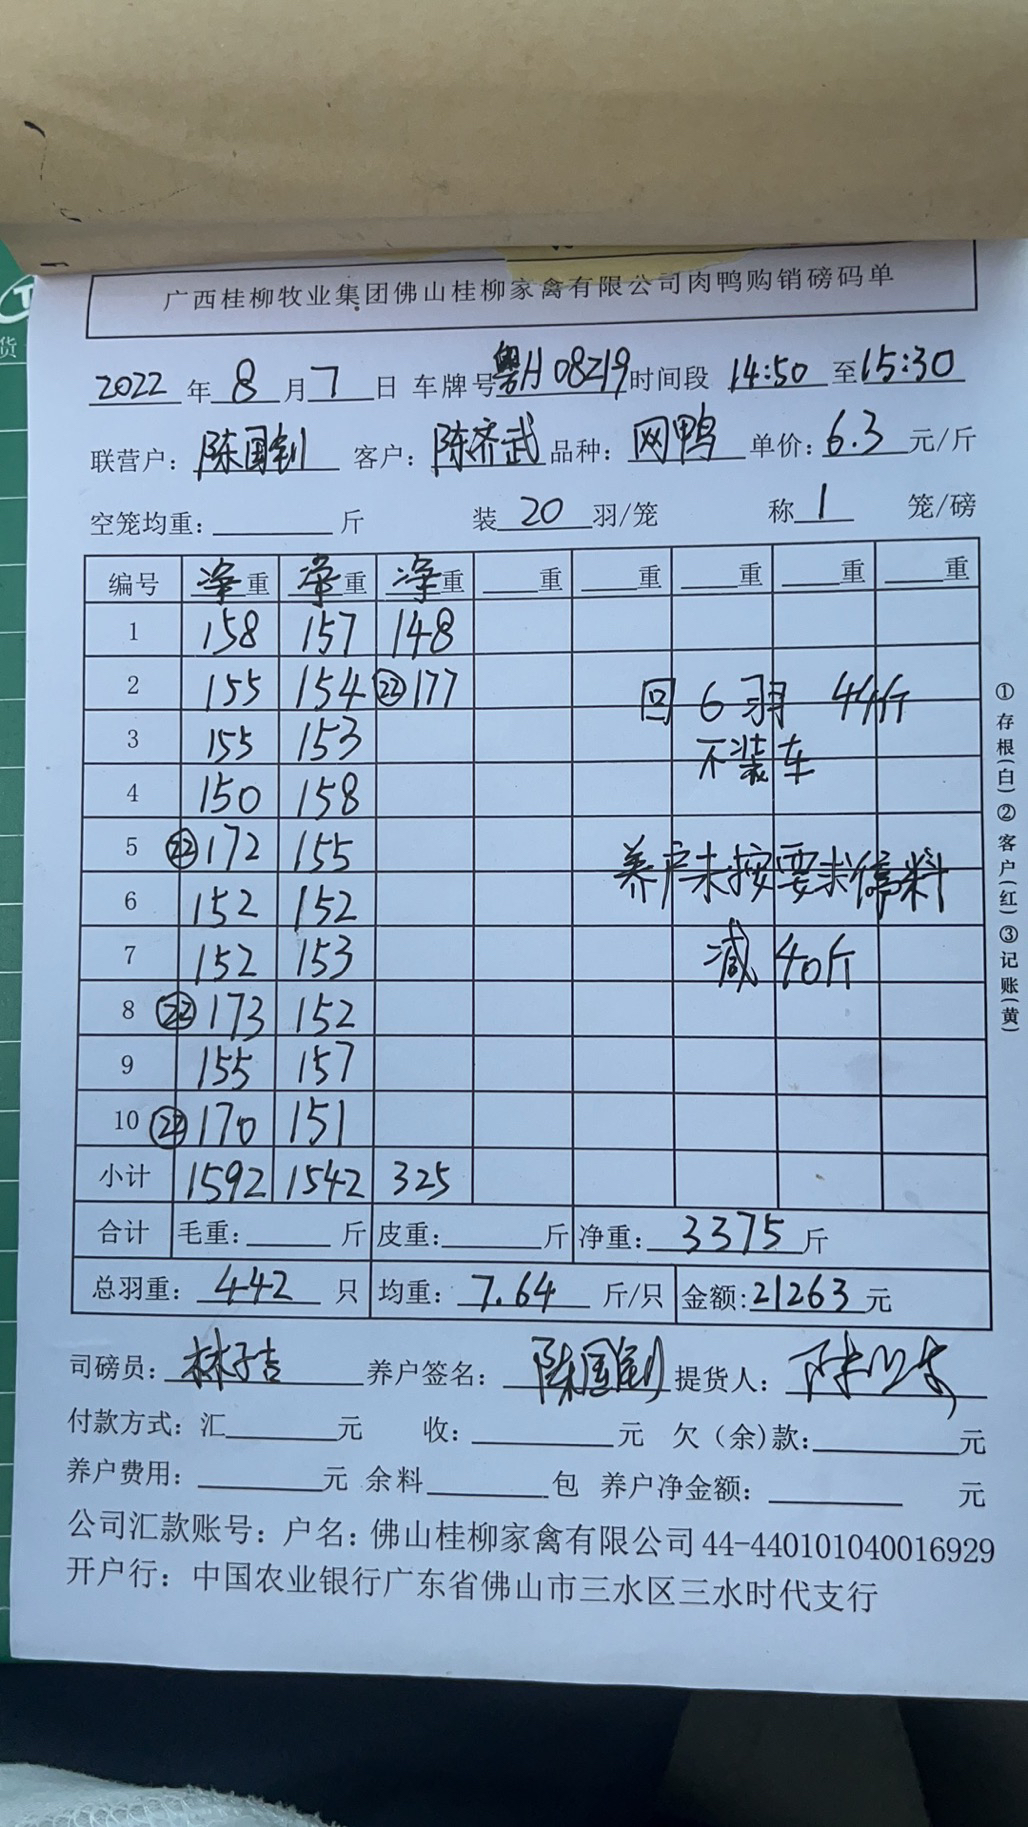 广西桂柳牧业集团佛山桂柳家禽有限公司肉鸭购销磅码单
2022年8月7日 车牌号粤H08Z19时间段14:50至15:30
联营户：陈国钊 客户：陈济武 品种：网鸭 单价：6.3元/斤
空笼均重：斤 装20羽/笼 称1笼/磅
编号 净重 净重 净重 重 重 重 重 重
1 158 157 148
2 155 154 ㉒177 回6羽 44斤
3 155 153 不装车
4 150 158
5 ㉒172 155 养户未按要求停料
6 152 152
7 152 153 减40斤
8 ㉒173 152
9 155 157
10 ㉒170 151
小计 1592 1542 325
合计 毛重：斤 皮重：斤 净重：3375斤
总羽重：442只 均重：7.64斤/只 金额：21263元
司磅员：林子吉 养户签名：陈国钊 提货人：
付款方式：汇元 收：元 欠（余)款：元
养户费用：元 余料包 养户净金额：元
公司汇款账号：户名：佛山桂柳家禽有限公司44-440101040016929
开户行：中国农业银行广东省佛山市三水区三水时代支行
①存根(白)②客户(红)③记账(黄)
货